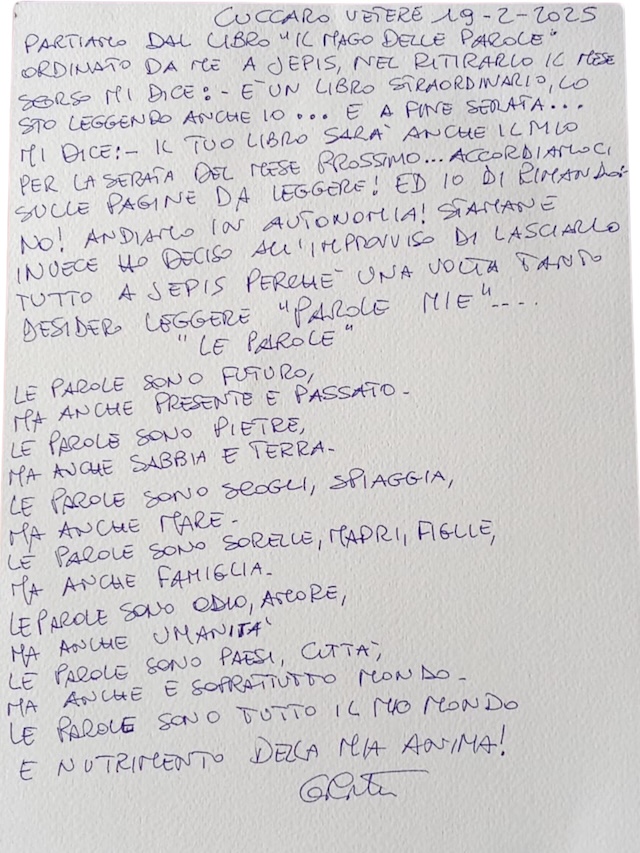 CUCCARO VETERE 19-2-2025
PARTIAMO DAL LIBRO "IL MAGO DELLE PAROLE"
ORDINATO DA ME A JEPIS, NEL RITIRARLO IL MESE
SCORSO MI DICE:- E' UN LIBRO STRAORDINARIO, LO
STO LEGGENDO ANCHE IO... E A FINE SERATA...
MI DICE:- IL TUO LIBRO SARA' ANCHE IL MIO
PER LA SERATA DEL MESE PROSSIMO... ACCORDIAMOCI
SULLE PAGINE DA LEGGERE! ED IO DI RIMANDO:
NO! ANDIAMO IN AUTONOMIA! STAMANE
INVECE HO DECISO ALL'IMPROVVISO DI LASCIARLO
TUTTO A JEPIS PERCHE' UNA VOLTA TANTO
DESIDERO LEGGERE "PAROLE MIE"....
"LE PAROLE"
LE PAROLE SONO FUTURO,
MA ANCHE PRESENTE E PASSATO-
LE PAROLE SONO PIETRE,
MA ANCHE SABBIA E TERRA-
LE PAROLE SONO SCOGLI, SPIAGGIA,
MA ANCHE MARE-
LE PAROLE SONO SORELLE, MADRI, FIGLIE,
MA ANCHE FAMIGLIA-
LE PAROLE SONO ODIO, AMORE,
MA ANCHE UMANITA'
LE PAROLE SONO PAESI, CITTA',
MA ANCHE E SOPRATTUTTO MONDO-
LE PAROLE SONO TUTTO IL MIO MONDO
E NUTRIMENTO DELLA MIA ANIMA!